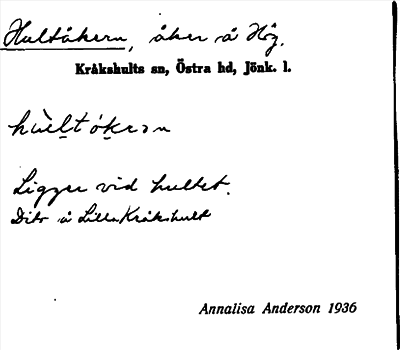 Hultåkern, åker å Hög.
Kråkshults sn, Östra hd, Jönk. l.
hùltåkəɳ
Ligger vid hultet.
Dito å Lilla Kråkshult
Annalisa Anderson 1936